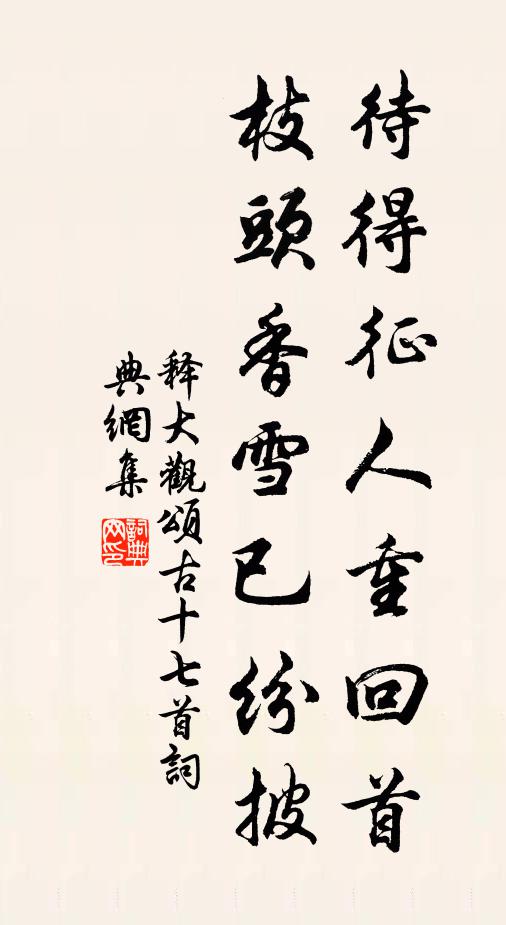 待得征人重回首
枝頭香雪已紛披
释大觀頌古十七首詞
典網集
詞典网印